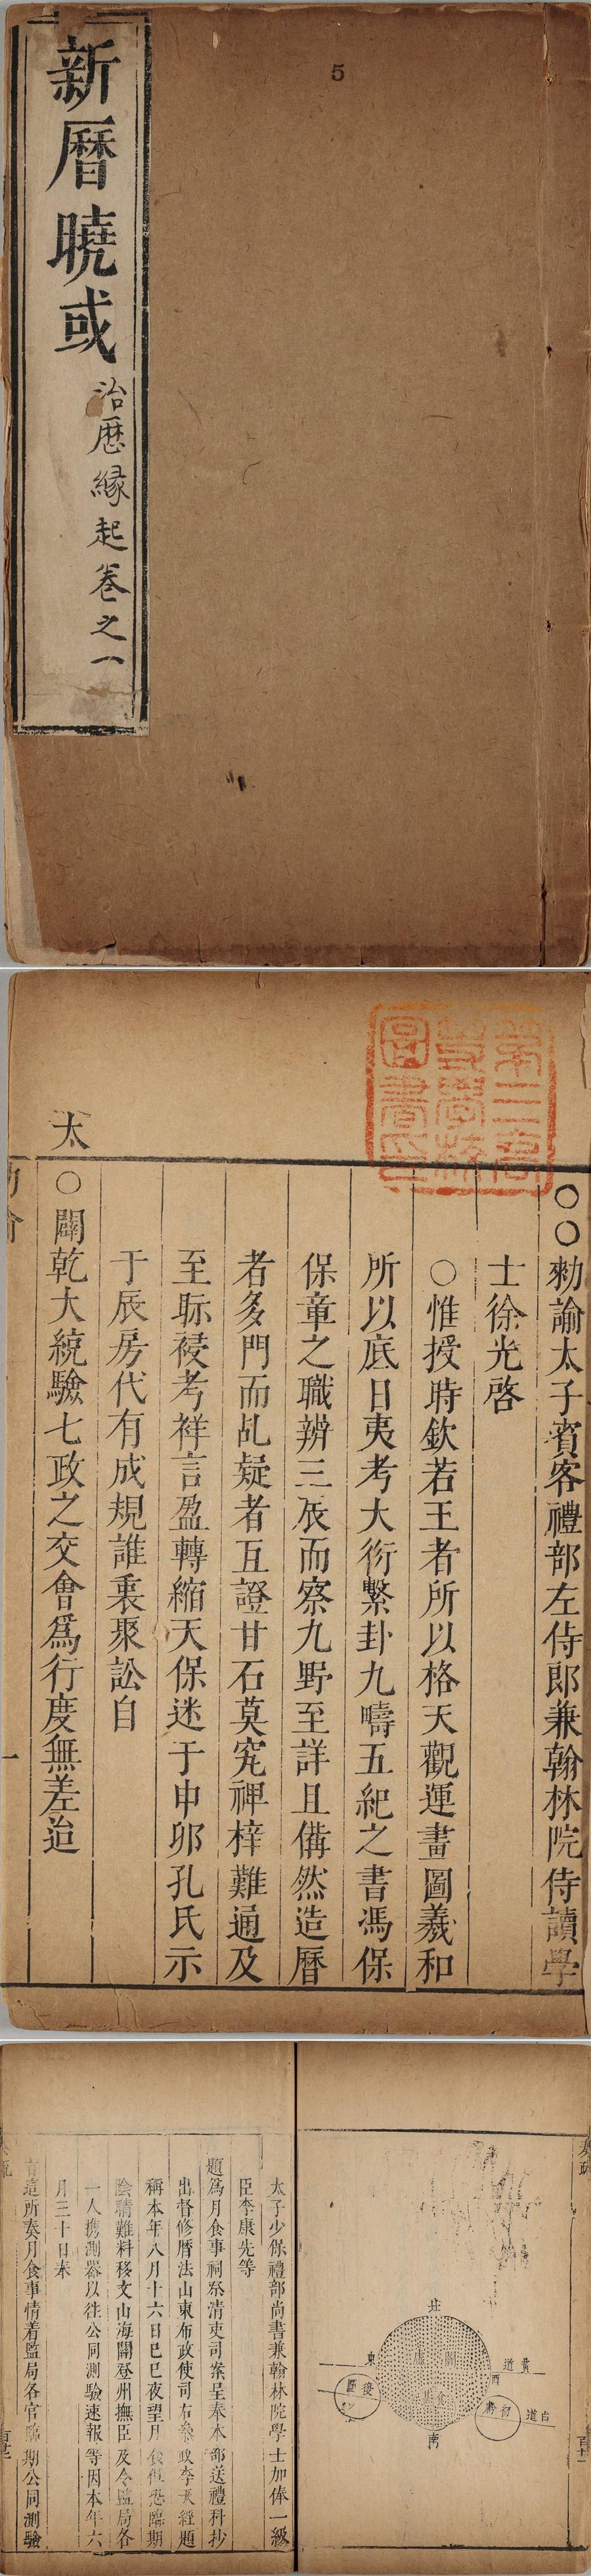 新曆曉或
治歷緣起卷之一
5
第三高
等學校
圖書印
○○勅諭太子賓客禮部左侍郎兼翰林院侍讀學
士徐光啓
○惟授時欽若王者所以格天觀運畫圖羲和
所以底日夷考大衍繫卦九疇五紀之書馮保
保章之職辨三辰而察九野至詳且備然造曆
者多門而乩疑者互證甘石莫究裨梓難通及
至眎祲考祥言盈轉縮天保迷于申卯孔氏示
于辰房代有成規誰裏聚訟自
太
○闢乾大統驗七政之交會爲行度無差迨
一
北
東
西
南
黃道
白道
初虧
復圓
太子少保禮部尚書兼翰林院學士加俸一級
臣李康先等
題爲月食事祠祭清吏司案呈奉本部送禮科抄
出督修曆法山東布政使司右參政李天經題
稱本年八月十六日己巳夜望月食但恐臨期
陰晴難料移文山海關登州撫臣及令監局各
一人携測器以往公同測驗速報等因本年六
月三十日奉
旨這所奏月食事情着監局各官臨期公同測驗